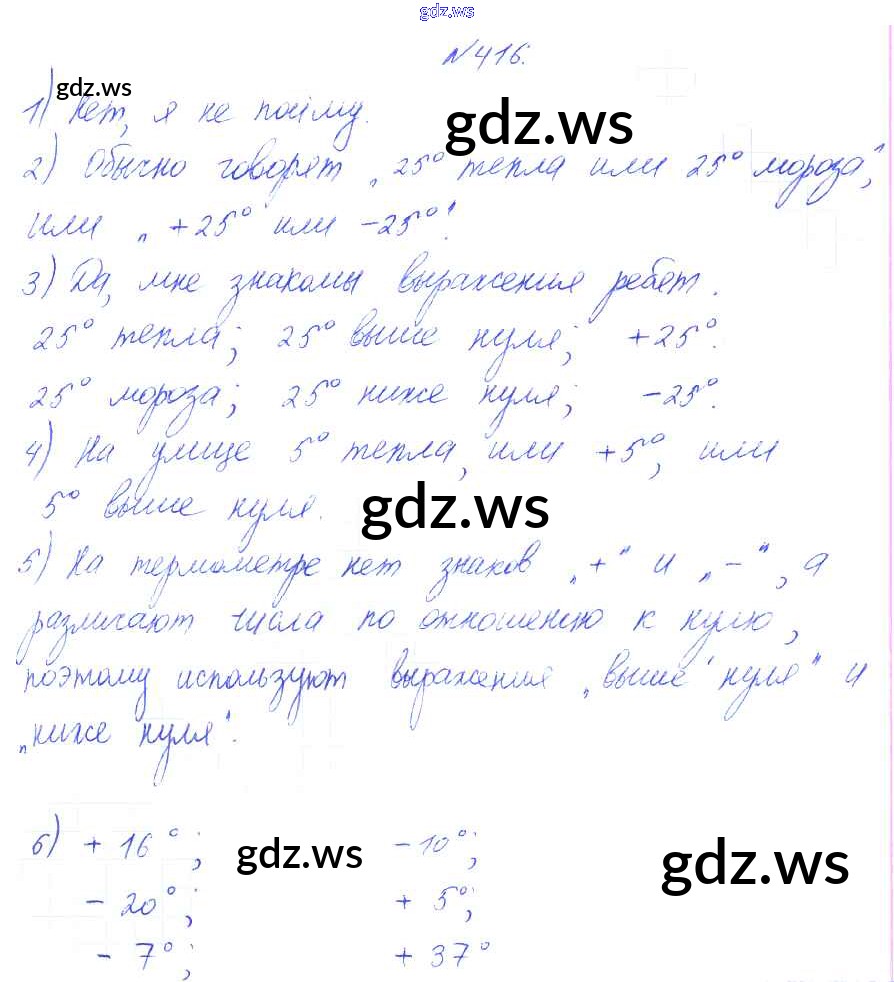 gdz.ws
№416.
gdz.ws
1) Нет, я не пойму.
gdz.ws
2) Обычно говорят „25° тепла или 25° мороза“,
или „+25° или -25°“.
3) Да, мне знакомы выражения ребят.
25° тепла; 25° выше нуля; +25°.
25° мороза; 25° ниже нуля; -25°.
4) На улице 5° тепла, или +5°, или
5° выше нуля.
gdz.ws
5) На термометре нет знаков „+“ и „-“, а
различают числа по отношению к нулю,
поэтому используют выражения „выше нуля“ и
„ниже нуля“.
6) +16°; -10°;
gdz.ws
gdz.ws
-20°; +5°;
-7°; +37°